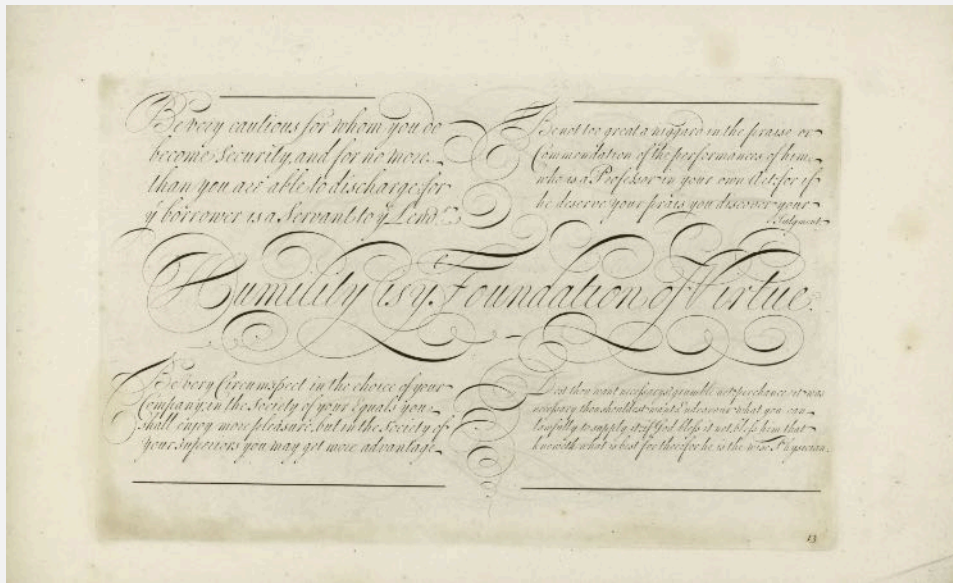 Be very cautious for whom you do
become Security, and for no more
than you are able to discharge: for
yͤ borrower is a Servant to yͤ Lendʳ
Be not too great a niggard in the praise or
Commendation of the performances of him
who is a Professor in your own Art: for if
he deserve your prais you discover your
Judgment
Humility is yͤ Foundation of Virtue.
Be very Circumspect in the choice of your
Company; in the Society of your Equals you
shall enjoy more pleasure, but in the Society of
your Superiors you may get more advantage
Dost thou want necessarys? grumble not, perchance it was
necessary thou shouldest want: Endeavour what you can
lawfully to supply it; if God bless it not, bless him that
knoweth what is best for thee; for he is the wise Physician.
13